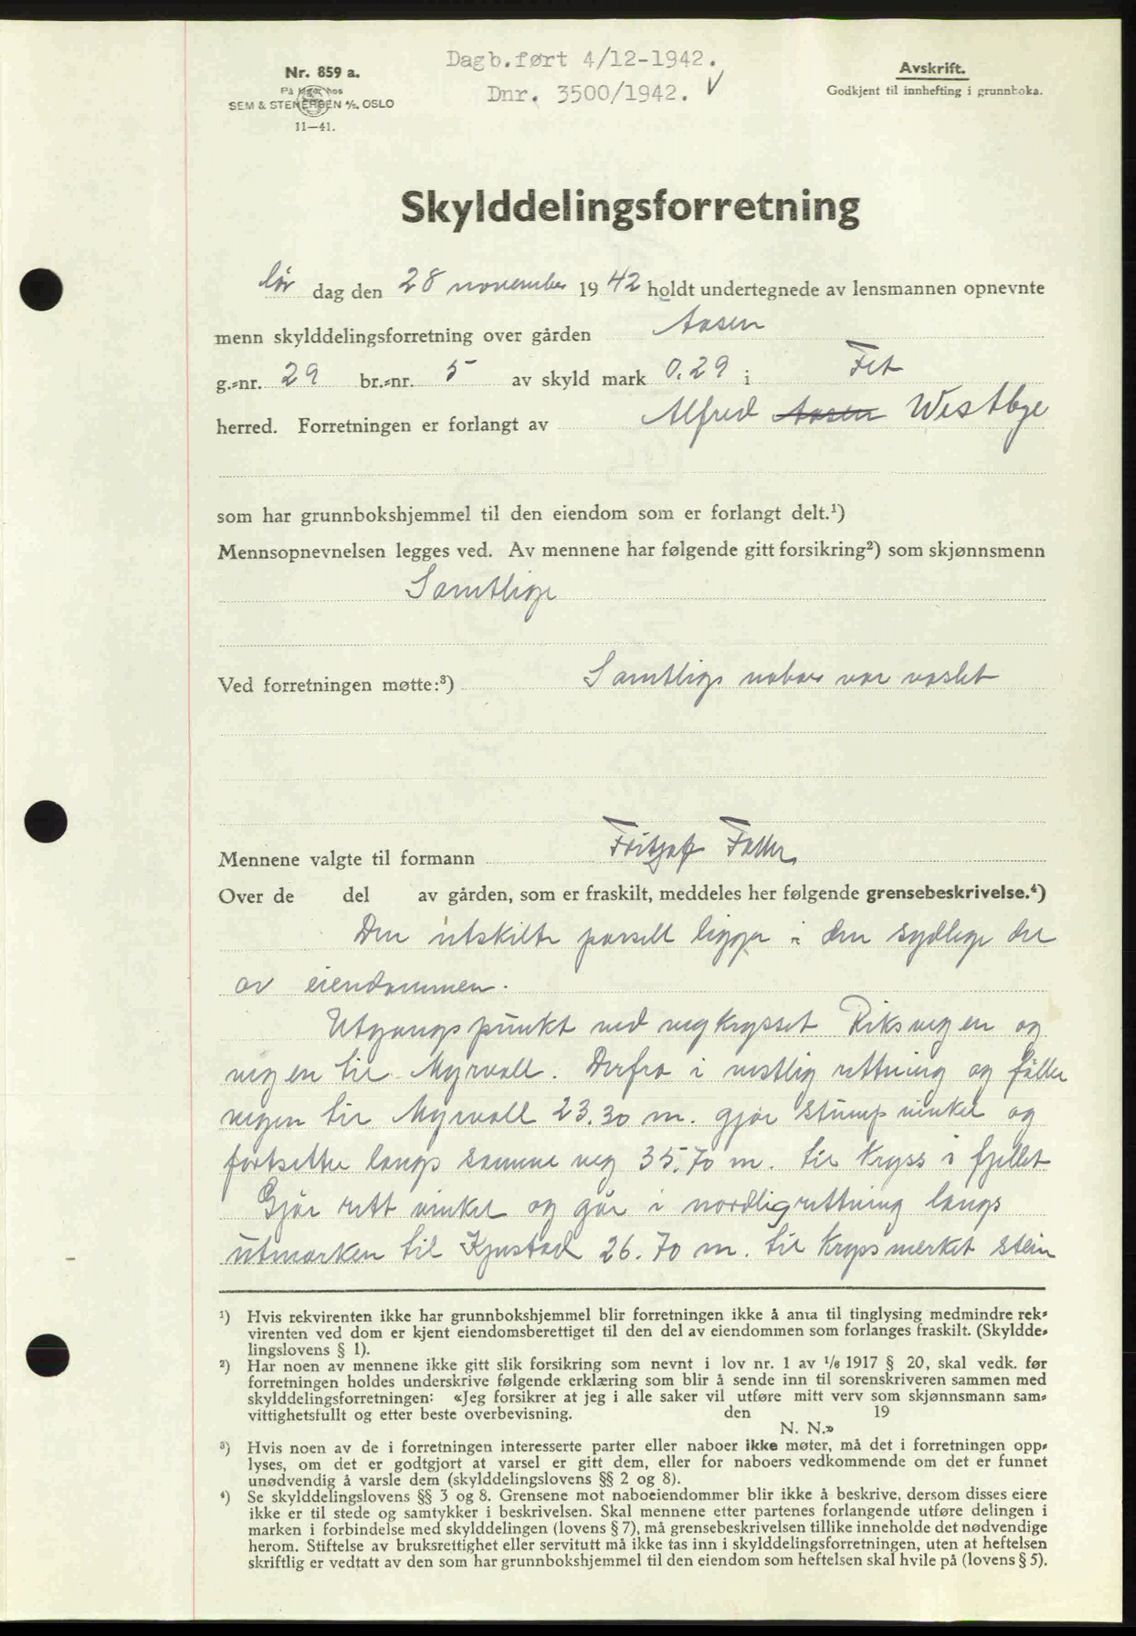 Dagb.ført 4/12-1942.
Dnr. 3500/1942. V
Nr. 859 a.
På lager hos
SEM & STENERSEN A/S. OSLO
11—41.
Avskrift.
Godkjent til innhefting i grunnboka.
Skylddelingsforretning
lør dag den 28 november 1942 holdt undertegnede av lensmannen opnevnte
menn skylddelingsforretning over gården Aasen
g.-nr. 29 br.-nr. 5 av skyld mark 0.29 i Fet
herred. Forretningen er forlangt av Alfred Aasen Westbye
som har grunnbokshjemmel til den eiendom som er forlangt delt.¹)
Mennsopnevnelsen legges ved. Av mennene har følgende gitt forsikring²) som skjønnsmenn
Samtlige
Ved forretningen møtte:³) Samtlige naboer var varslet
Mennene valgte til formann Fritjof Faller
Over de del av gården, som er fraskilt, meddeles her følgende grensebeskrivelse.⁴)
Den utskilte parsell ligger i den sydlige del
av eiendommen.
Utgangspunkt ved vegkrysset Riksvegen og
vegen til Myrvoll. Derfra i vestlig rettning og føller
vegen til Myrvoll 23.30 m. gjør stump vinkel og
fortsetter langs samme veg 35.70 m. til kryss i fjellet
Gjør rett vinkel og går i nordlig rettning langs
utmarken til Kjustad 26.70 m. til krysmerket stein
¹) Hvis rekvirenten ikke har grunnbokshjemmel blir forretningen ikke å anta til tinglysing medmindre rek-
virenten ved dom er kjent eiendomsberettiget til den del av eiendommen som forlanges fraskilt. (Skyldde-
lingslovens § 1).
²) Har noen av mennene ikke gitt slik forsikring som nevnt i lov nr. 1 av 1/6 1917 § 20, skal vedk. før
forretningen holdes underskrive følgende erklæring som blir å sende inn til sorenskriveren sammen med
skylddelingsforretningen: «Jeg forsikrer at jeg i alle saker vil utføre mitt verv som skjønnsmann sam-
vittighetsfullt og etter beste overbevisning. den 19
N. N.»
³) Hvis noen av de i forretningen interesserte parter eller naboer ikke møter, må det i forretningen opp-
lyses, om det er godtgjort at varsel er gitt dem, eller for naboers vedkommende om det er funnet
unødvendig å varsle dem (skylddelingslovens §§ 2 og 8).
⁴) Se skylddelingslovens §§ 3 og 8. Grensene mot naboeiendommer blir ikke å beskrive, dersom disses eiere
ikke er til stede og samtykker i beskrivelsen. Skal mennene etter partenes forlangende utføre delingen i
marken i forbindelse med skylddelingen (lovens § 7), må grensebeskrivelsen tillike inneholde det nødvendige
herom. Stiftelse av bruksrettighet eller servitutt må ikke tas inn i skylddelingsforretningen, uten at heftelsen
skriftlig er vedtatt av den som har grunnbokshjemmel til den eiendom som heftelsen skal hvile på (lovens § 5).